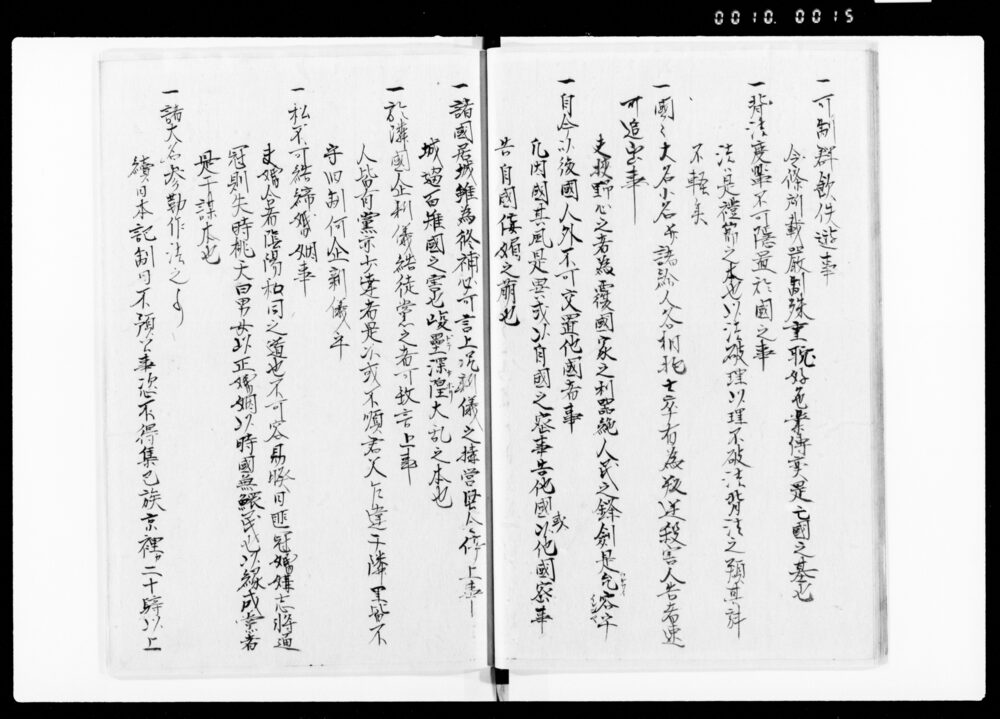 0010.0015
一可制群飲佚遊事
令條所載嚴制殊重耽好色業博奕是亡國之基也
一背法度輩不可隠置於國之事
法是禮節之本也以法破理以理不破法背法之類其科
不軽矣
一國々大名小名并諸給人各相抱士卒有為叛逆殺害人告者速
可追出事
夫挟野心之者為覆國家之利器絶人民之鋒剣是允容乎
一自今以後國人外不可交置他國者事
凡因國其風是異或以自國之密事告他國或以他國密事
告自國侫媚之萌也
一諸國居城雖為修補必可言上況新儀之搆営堅令停止事
城過百雉國之害也峻壘深隍大乱之本也
一於隣國企新儀結徒黨之者可致言上事
人皆有黨亦少達者是以或不順君父乍違于隣里皆不
守旧制何企新儀乎
一私不可結締婚姻事
夫婚合者陰陽和同之道也不可容易睽曰匪冦婚媾志将通
冦則失時桃夭曰男女以正婚姻以時國無鰥民也以縁成黨者
是干謀本也
一諸大名参勤作法之事
續日本記制曰不預公事恣不得集己族京裡二十騎以上